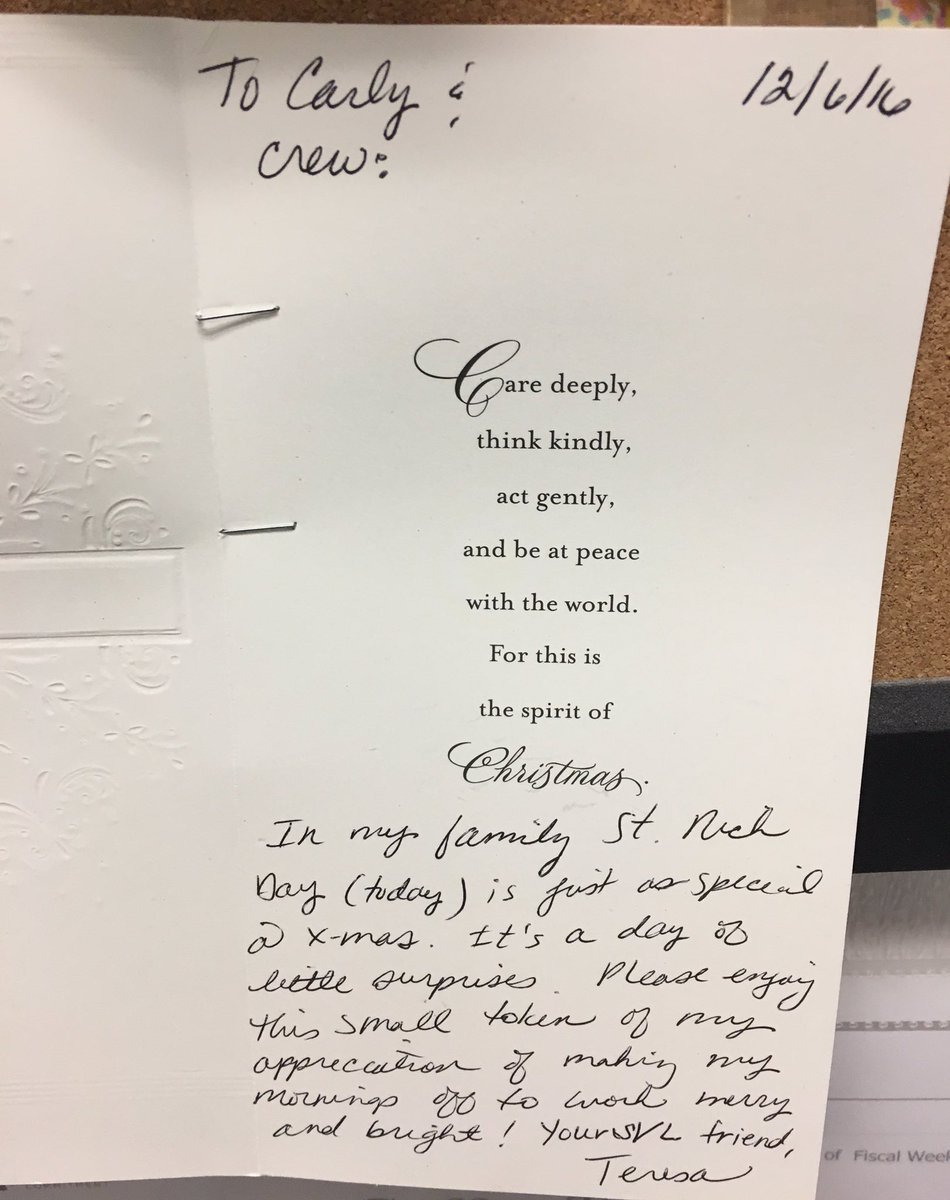 To Carly &
12/6/16
crew:
Care deeply,
think kindly,
act gently,
and be at peace
with the world.
For this is
the spirit of
Christmas.
In my family St. Nick
Day (today) is just as special
@ x-mas. It's a day of
little surprises. Please enjoy
this small token of my
apprecation of making my
mornings off to work merry
and bright! Your SVL friend,
Teresa
of Fiscal Week